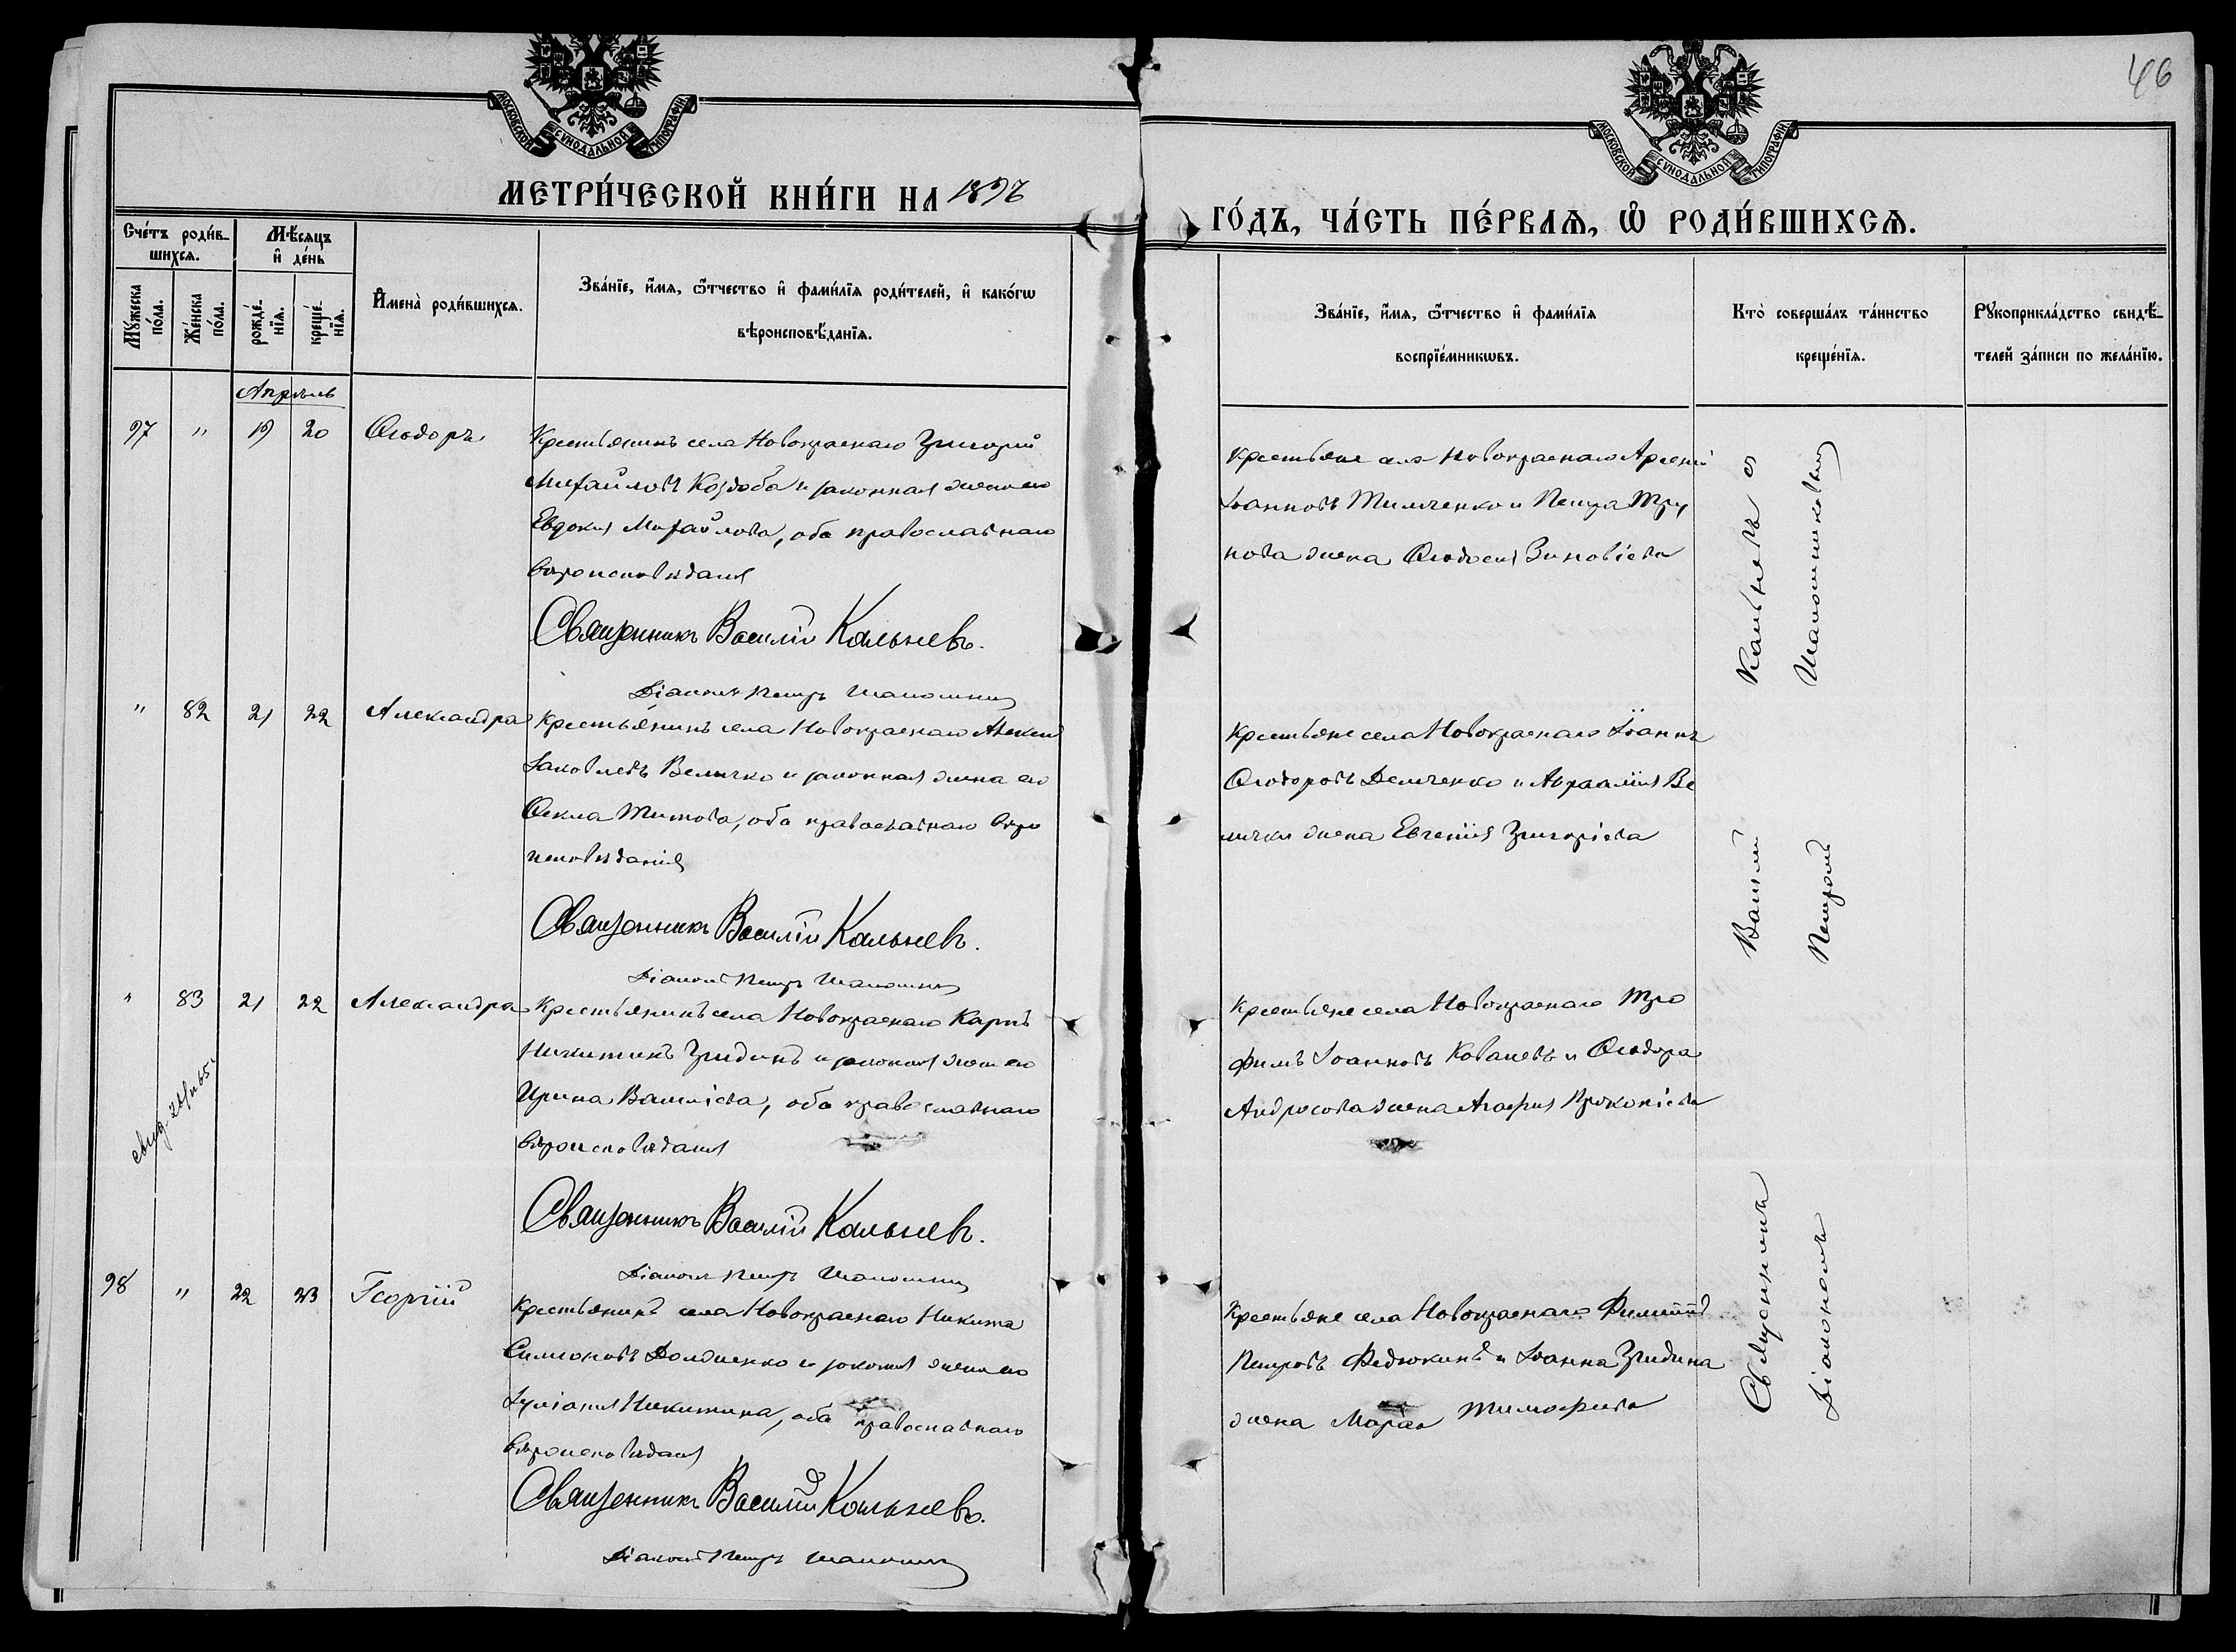 46
МОСКОВСКОЙ СѴНОДАЛЬНОЙ ТИПОГРАФІИ
МОСКОВСКОЙ СѴНОДАЛЬНОЙ ТИПОГРАФІИ
МЕТРИ́ЧЕСКОЙ КНИ́ГИ НА 1896
ГО́ДЪ, ЧА́СТЬ ПЕ́РВАѦ, Ѡ РОДИ́ВШИХСѦ.
Сче́тъ роди́в-
шихсѧ.
Мꙋ́жеска
по́ла.
Же́нска
по́ла.
Мѣ́сѧцъ
и҆ де́нь
рожде́-
нїѧ.
креще́-
нїѧ.
И҆мена̀ роди́вшихсѧ.
Зва́нїе, и҆́мѧ, ѻ҆́тчество и҆ фами́лїѧ роди́телей, и҆ како́гѡ
вѣроисповѣ́данїѧ.
Зва́нїе, и҆́мѧ, ѻ҆́тчество и҆ фами́лїѧ
воспрїе́мникѡвъ.
Кто̀ соверша́лъ та́инство
креще́нїѧ.
Рꙋкоприкла́дство свидѣ́-
телей за́писи по жела́нїю.
Апрѣль
97 " 19 20 Ѳеодоръ
Крестьянинъ села Новокраснаго Григорій
Михайловъ Коздоба и законная жена его
Евдокія Михайлова, оба православнаго
вѣроисповѣданія
Священникъ Василій Кальневъ.
Діаконъ Петръ
Крестьяне села Новокраснаго Арсеній
Іоанновъ Тимченко и Петра Тру
нова жена Ѳеодосія Зиновіева
" 82 21 22 Александра
Крестьянинъ села Новокраснаго Алексій
Іаковлевъ Величко и законная жена его
Ѳекла Титова, оба православнаго вѣро
исповѣданія
Священникъ Василій Кальневъ.
Діаконъ Петръ
Крестьяне села Новокраснаго Іоаннъ
Ѳеодоровъ Демченко и Авраамія Ве
лички жена Евгенія Григоріева
" 83 21 22 Александра
Крестьянинъ села Новокраснаго Карпъ
Никитинъ Гридинъ и законная жена его
Ирина Василіева, оба православнаго
вѣроисповѣданія
Священникъ Василій Кальневъ.
Діаконъ Петръ
Крестьяне села Новокраснаго Тро
фимъ Іоанновъ Ковалевъ и Ѳеодора
Андросова жена Агафія Прокопіева
98 " 22 23 Георгій
Крестьянинъ села Новокраснаго Никита
Симеоновъ Долженко и законная жена его
Іуліанія Никитина, оба православнаго
вѣроисповѣданія
Священникъ Василій Кальневъ.
Діаконъ Петръ
Крестьяне села Новокраснаго Филиппъ
Петровъ Федюкинъ и Іоанна Гридина
жена Марѳа Тимофеева
Священникъ Василій Кальневъ съ
Діакономъ Петромъ